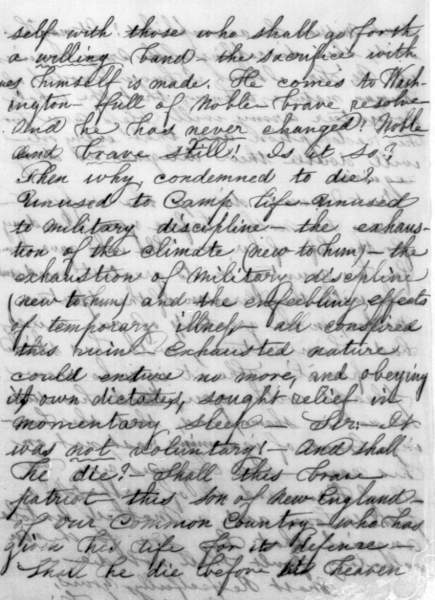 self with those who shall go forth,
a willing band – the sacrifice with
himself is made. He comes to Wash-
ington – full of Noble – brave resolve –
And he has never changed! Noble
and brave still! Is it so?
Then why condemned to die?
Unused to Camp life – Unused
to military discipline – the exhaus-
tion of the climate (new to him) – the
exhaustion of military discipline
(new to him) and the enfeebling effects
of temporary illness – all conspired
this ruin – Exhausted nature
could endure no more, and obeying
its own dictates, sought relief in
momentary sleep – Sir: It
was not voluntary! – And shall
He die? – Shall this brave
patriot this son of New England –
of our Common Country – who has
given his life for its defence –
Shall he die before Heaven